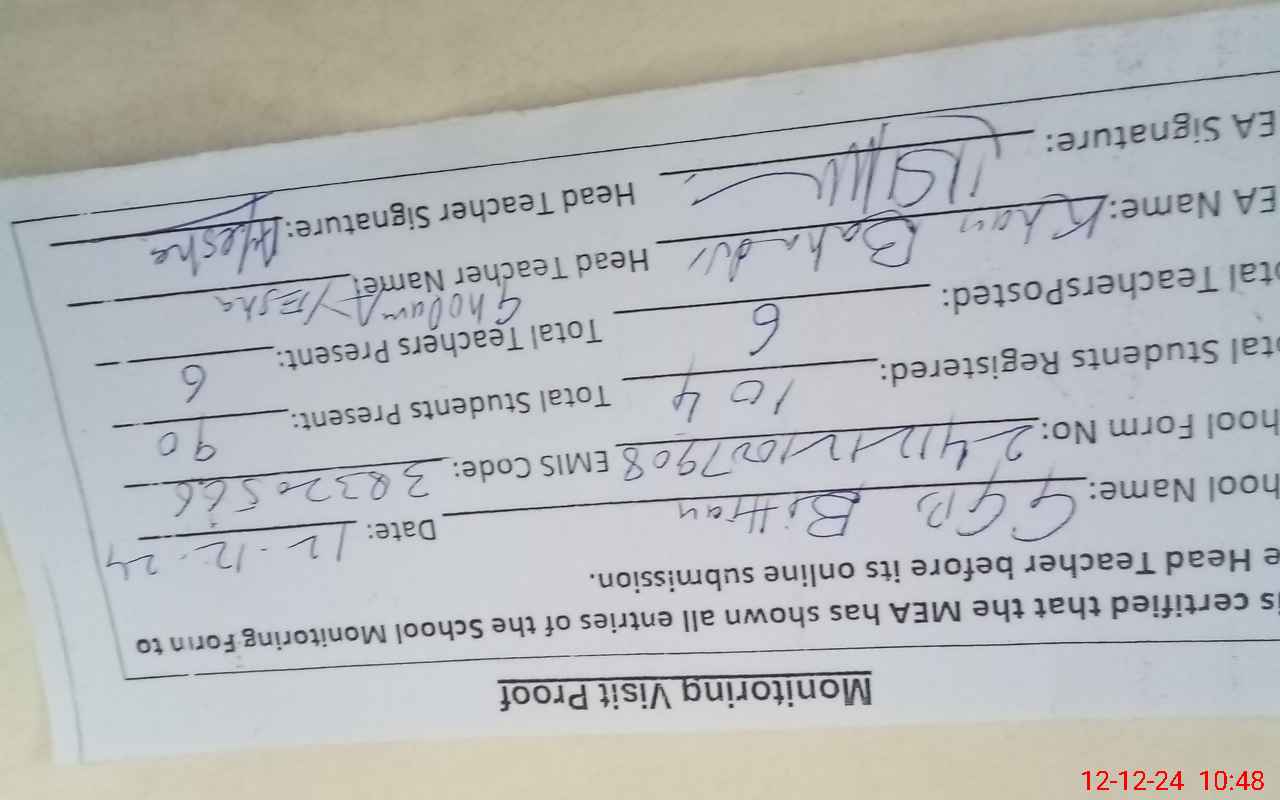 Monitoring Visit Proof
is certified that the MEA has shown all entries of the School Monitoring Form to
e Head Teacher before its online submission.
hool Name: GGPS Bittran Date: 12-12-24
hool Form No: 2412121027908 EMIS Code: 38320566
tal Students Registered: 104 Total Students Present: 90
otal TeachersPosted: 6 Total Teachers Present: 6
EA Name: Khan Bahadur Head Teacher Name: Gholam Ayesha
EA Signature: Head Teacher Signature: Ayesha
12-12-24 10:48